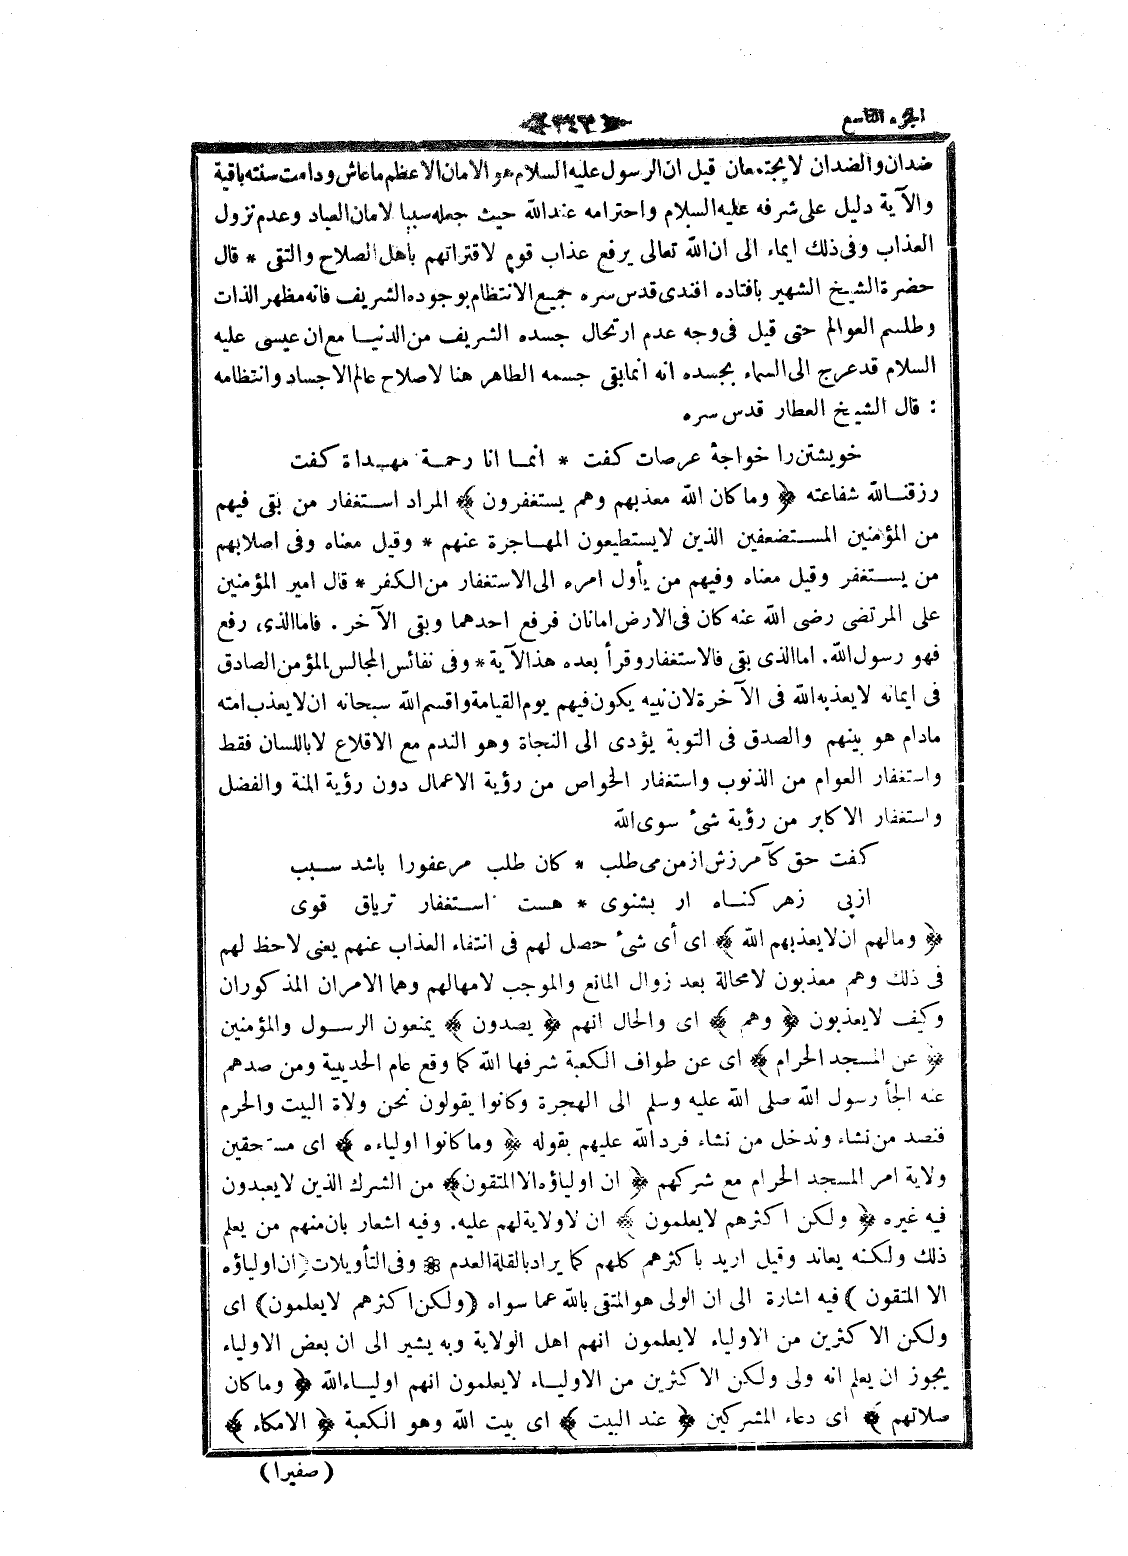 الجزء التاسع
﴿ ٣٤٣ ﴾
ضدان والضدان لا يجتمعان قيل ان الرسول عليه السلام هو الامان الاعظم ما عاش ودامت سنته باقية
والآية دليل على شرفه عليه السلام واحترامه عندالله حيث جعله سببا لامان العباد وعدم نزول
العذاب وفى ذلك ايماء الى ان الله تعالى يرفع عذاب قوم لاقترانهم باهل الصلاح والتقى * قال
حضرة الشيخ الشهير بافتاده افندى قدس سره جميع الانتظام بوجوده الشريف فانه مظهر الذات
وطلسم العوالم حتى قيل فى وجه عدم ارتحال جسده الشريف من الدنيا مع ان عيسى عليه
السلام قد عرج الى السماء بجسده انه انما بقى جسمه الطاهر هنا لاصلاح عالم الاجساد وانتظامه
: قال الشيخ العطار قدس سره
خويشتن را خواجهٔ عرصات كفت * انما انا رحمة مهداة كفت
رزقنا الله شفاعته ﴿ وما كان الله معذبهم وهم يستغفرون ﴾ المراد استغفار من بقى فيهم
من المؤمنين المستضعفين الذين لا يستطيعون المهاجرة عنهم * وقيل معناه وفى اصلابهم
من يستغفر وقيل معناه وفيهم من يأول امره الى الاستغفار من الكفر * قال امير المؤمنين
على المرتضى رضى الله عنه كان فى الارض امانان فرفع احدهما وبقى الآخر . فاما الذى رفع
فهو رسول الله. اما الذى بقى فالاستغفار وقرأ بعده هذا الآية * وفى نفائس المجالس المؤمن الصادق
فى ايمانه لا يعذبه الله فى الآخرة لان نبيه يكون فيهم يوم القيامة واقسم الله سبحانه ان لا يعذب امته
مادام هو بينهم والصدق فى التوبة يؤدى الى النجاة وهو الندم مع الاقلاع لا باللسان فقط
واستغفار العوام من الذنوب واستغفار الخواص من رؤية الاعمال دون رؤية المنة والفضل
واستغفار الاكابر من رؤية شئ سوى الله
كفت حق كآمرزش از من مى طلب * كان طلب مر عفورا باشد سبب
از پى زهر كناه ار بشنوى * هست استغفار ترياق قوى
﴿ ومالهم ان لا يعذبهم الله ﴾ اى أى شئ حصل لهم فى انتفاء العذاب عنهم يعنى لاحظ لهم
فى ذلك وهم معذبون لا محالة بعد زوال المانع والموجب لامهالهم وهما الامران المذكوران
وكيف لا يعذبون ﴿ وهم ﴾ اى والحال انهم ﴿ يصدون ﴾ يمنعون الرسول والمؤمنين
﴿ عن المسجد الحرام ﴾ اى عن طواف الكعبة شرفها الله كما وقع عام الحديبية ومن صدهم
عنه الجأ رسول الله صلى الله عليه وسلم الى الهجرة وكانوا يقولون نحن ولاة البيت والحرم
فنصد من نشاء وندخل من نشاء فرد الله عليهم بقوله ﴿ وما كانوا اولياءه ﴾ اى مستحقين
ولاية امر المسجد الحرام مع شركهم ﴿ ان اولياؤه الا المتقون ﴾ من الشرك الذين لا يعبدون
فيه غيره ﴿ ولكن اكثرهم لا يعلمون ﴾ ان لا ولاية لهم عليه. وفيه اشعار بان منهم من يعلم
ذلك ولكنه يعاند وقيل اريد باكثرهم كلهم كما يراد بالقلة العدم * وفى التأويلات (ان اولياؤه
الا المتقون) فيه اشارة الى ان الولى هو المتقى بالله عما سواه (ولكن اكثرهم لا يعلمون) اى
ولكن الاكثرين من الاولياء لا يعلمون انهم اهل الولاية وبه يشير الى ان بعض الاولياء
يجوز ان يعلم انه ولى ولكن الاكثرين من الاولياء لا يعلمون انهم اولياء الله ﴿ وما كان
صلاتهم ﴾ اى دعاء المشركين ﴿ عند البيت ﴾ اى بيت الله وهو الكعبة ﴿ الا مكاء ﴾
(صفيرا)